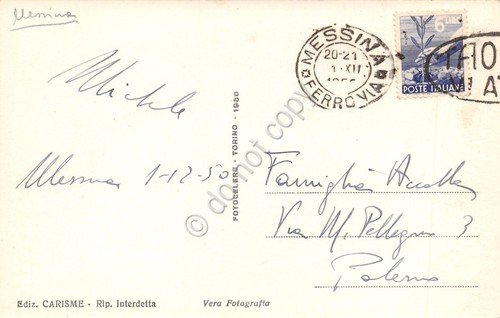 Messina
MESSINA
FERROVIA
20-21
1·XII
6 LIRE
POSTE ITALIANE
Michele
Messina 1-12-50
FOTOCELERE - TORINO - 1950
do not copy
Famiglia
Via M. Pellegrino 3
Palermo
Ediz. CARISME - Rip. Interdetta
Vera Fotografia